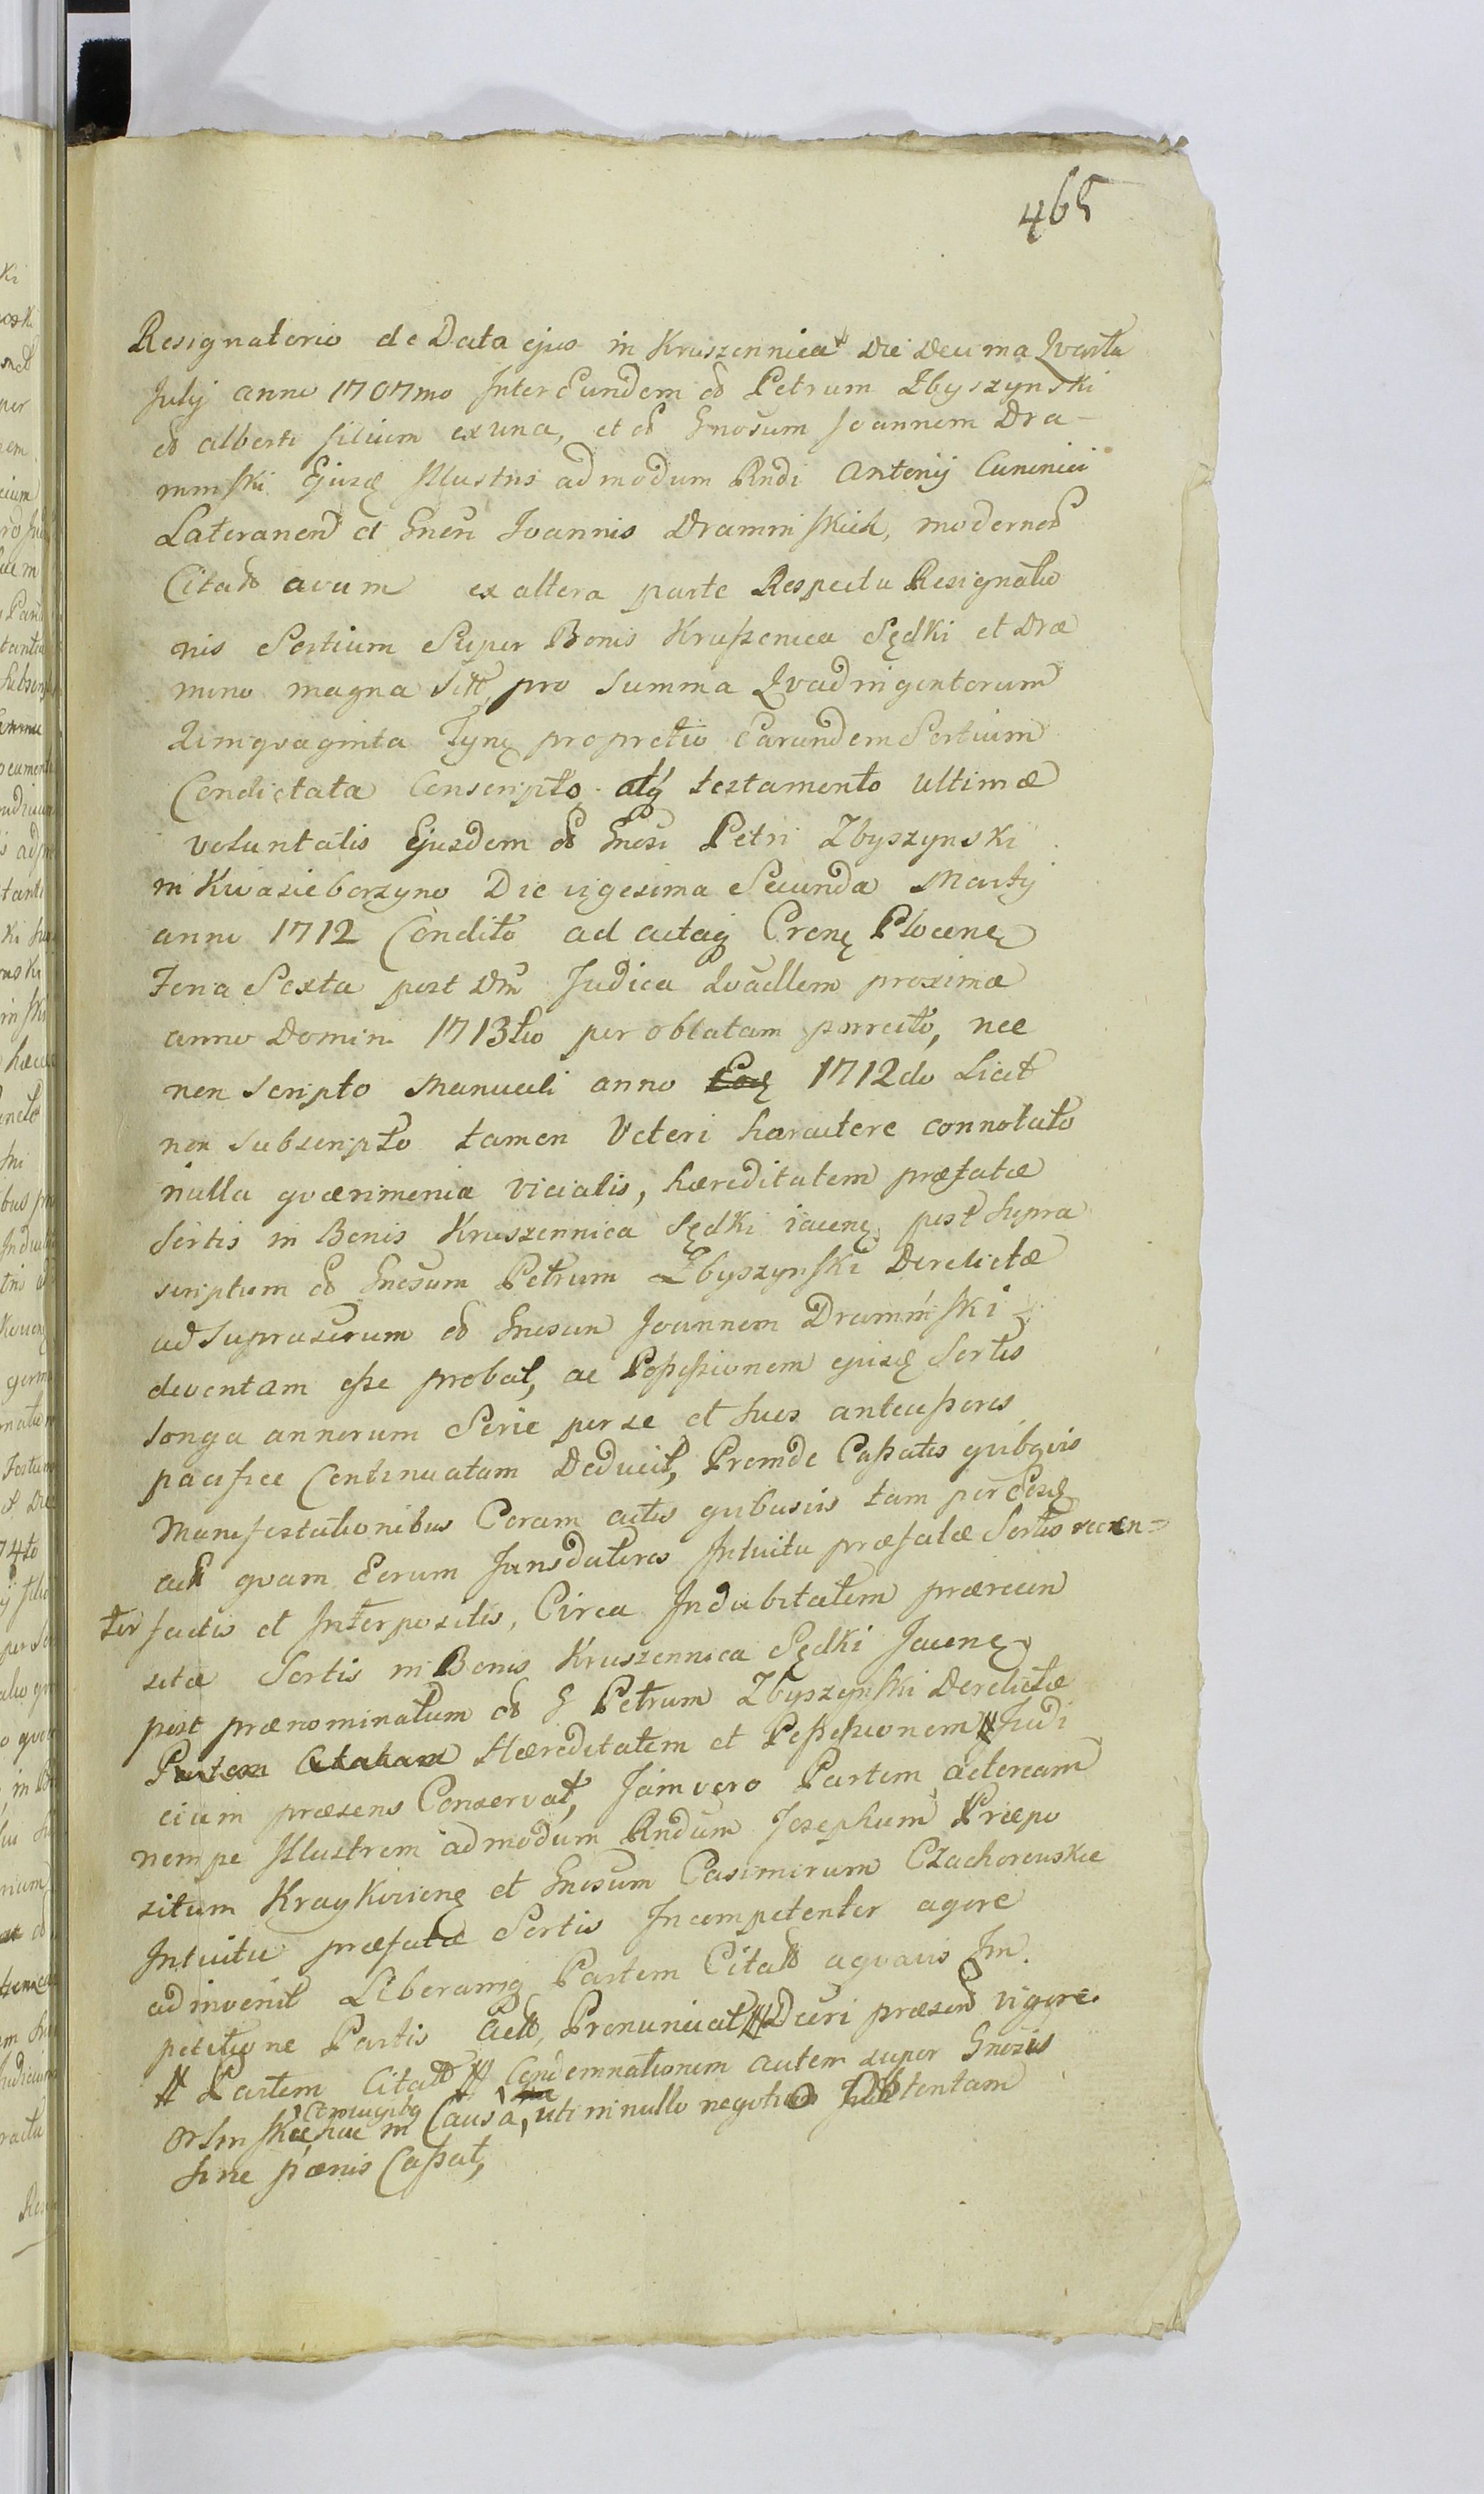 465
Resignatorio de Data ejus in Kruszennica Die Decima Qvarta
Julij anno 1707mo Inter Eundem oð Petrum Zbyszynski
oð alberti filium ex una, et oð Gnosum Joannem Dra-
minſki Ejusdę Illustris admodum Rndi Antonij Canonici
Lateranen̄ et Gnosi Joannis Draminſkich, moderneð
Citatð avum ex altera parte Respectu Resignatio
nis Sortium Super Bonis Kruſzenica Sędki et Dra
mino magna Sitt, pro Summa Qvadringentorum
Qvinqvaginta Tynę pro pretio Earundem Sortium
Condictata Conscripto atq testamento ultimæ
voluntatis Ejusdem oð Gnosi Petri Zbyszynski
in Kwasieborzyno Die vigesima Secunda Martij
anno 1712 Condito ad actaq Crenę Plocenę
Feria Sexta post Dm̄ Judica Qvadlem proxima
anno Domini 1713tio per oblatam porrecto, nec
non scripto Manuali anno 1712do Licet
non Subscripto tamen Veteri haractere connotato
nulla qværimonia vicialis, hæreditatem præfatæ
Sortis in Bonis Kruszennica Sędki iacenę post Supra
scriptum oð Gnosum Petrum Zbyszynſki Derelictæ
ad Suprascrum oð Gnosum Joannem Draminſki
deventam eſse probat, ac Poſseſsionem ejusdę Sortis
longa annorum Serie per se et suos anteceſsores
pacifice Continuatam Deducit, Proinde Caſsatis qvibqvis
Manifestationibus Coram actis qvibusvis tam per Eosdę
act qvam Eorum Jurisdatores Intuitu præfatæ Sortis recen-
ter factis et Interpositis, Circa Indubitatem præreccen
sitæ Sortis in Bonis Kruszennica Sędki Jacenę
post prænominatum oð G Petrum Zbyszynſki Derelictæ
Partem Citatam Hæreditatem et Poſseſsionem # Judi
cium præsens Conservat, Jam vero Partem actoream
nempe Illustrem admodum Rndum Josephum Præpo
situm Kraykovienę et Gnosum Casimirum Czachorowskie
Intuitu præfatæ Sortis Incompetenter agere
adinvenit Liberamq Partem Citatð aqvavis Im
petitione Partis Actð, Pronunciat # Decri præsen̄ vigore.
# Partem Citatð # Condemnationem autem super Gnosis
Orlinſkie Coniugibq hac in Causa, uti in nullo negotio Obtentam
sine pœnis Caſsat,